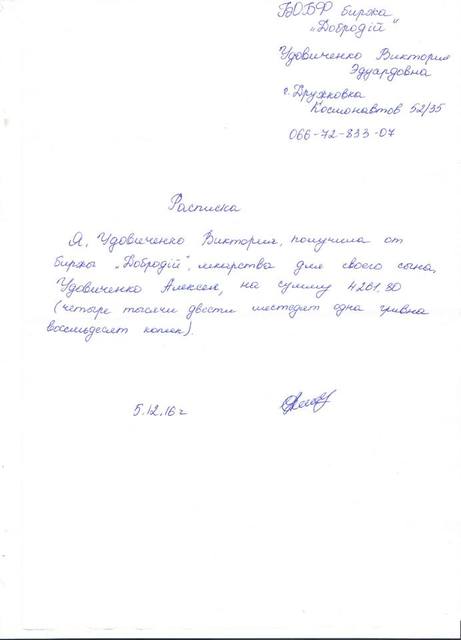 БОБФ биржа
„Добродій"
Удовиченко Виктория
Эдуардовна
г. Дружковка
Космонавтов 52/35
066-72-833-07
Расписка
Я, Удовиченко Виктория, получила от
биржы „Добродій", лекарства для своего сына,
Удовиченко Алексея, на сумму 4261.80
(четыре тысячи двести шестедят одна гривна
восемьдесят копеек).
5.12.16 г